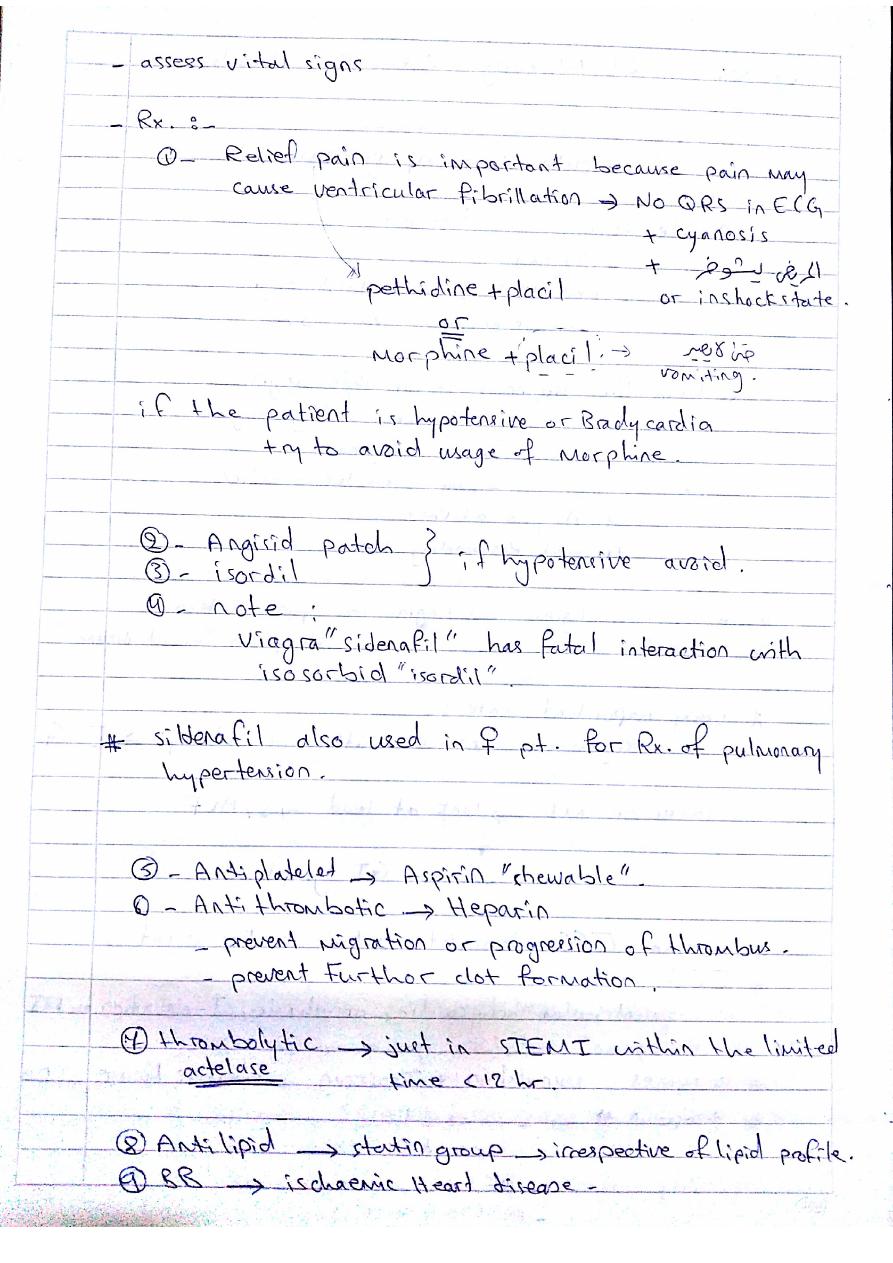 - assess vital signs
- Rx. :-
① - Relief pain is important because pain may
cause ventricular fibrillation → No QRS in ECG
+ cyanosis
+ المريض
or in shock state.
pethidine + placil
or
Morphine + placil. →
vomiting.
if the patient is hypotensive or Bradycardia
try to avoid usage of Morphine.
② - Angisid patch } if hypotensive avoid.
③ - isordil
④ - note :
Viagra "sidenafil" has fatal interaction with
isosorbid "isordil".
# sildenafil also used in ♀ pt. for Rx. of pulmonary
hypertension.
⑤ - Antiplatelet → Aspirin "chewable".
⑥ - Antithrombotic → Heparin
- prevent migration or progression of thrombus.
- prevent Furthor clot formation.
⑦ thrombolytic → just in STEMI within the limited
actelase time < 12 hr.
⑧ Antilipid → statin group → irrespective of lipid profile.
⑨ BB → ischaemic Heart disease -